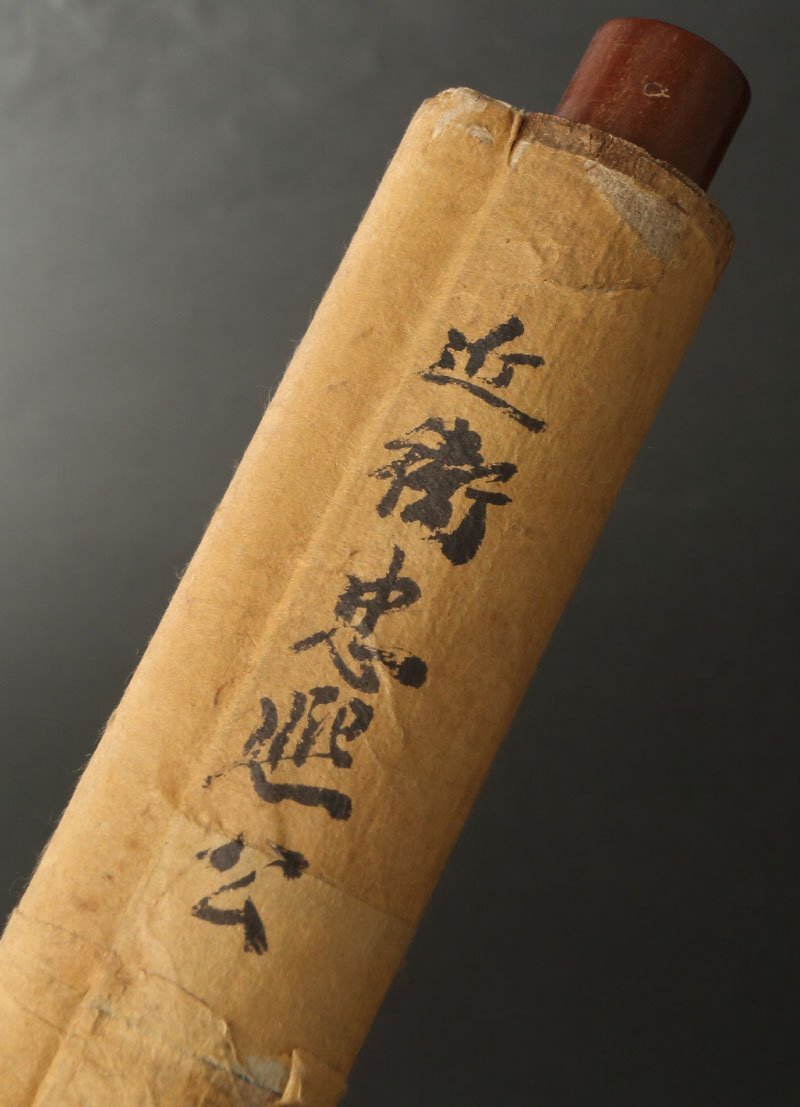 近衛忠熈公